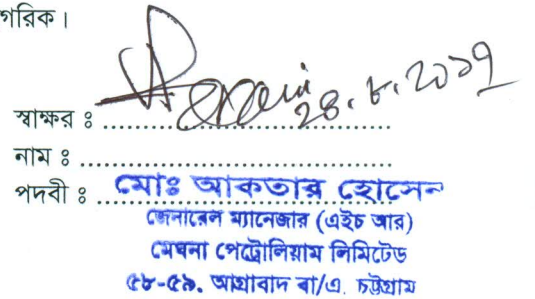 গরিক।
স্বাক্ষর ঃ
২৪.৮.২০১৭
নাম ঃ
পদবী ঃ মোঃ আকতার হোসেন
জেনারেল ম্যানেজার (এইচ আর)
মেঘনা পেট্রোলিয়াম লিমিটেড
৫৮-৫৯, আগ্রাবাদ বা/এ, চট্টগ্রাম